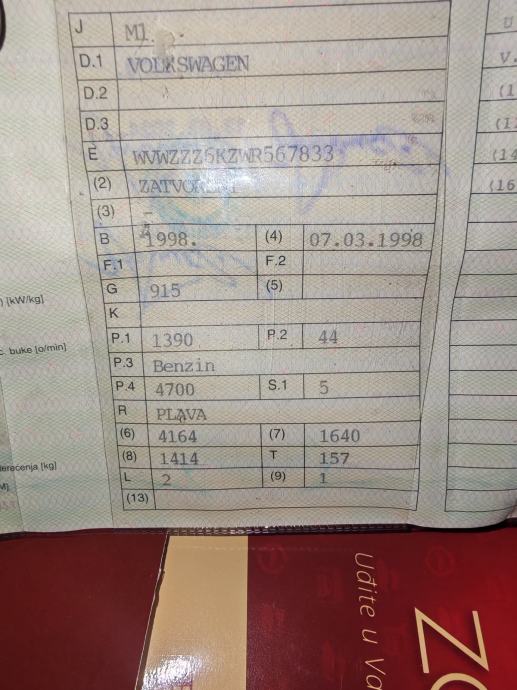 J M1.
D.1 VOLKSWAGEN
D.2
D.3
E WVWZZZ6KZWR567833
(2) ZATVORENI
(3) –
B 1998. (4) 07.03.1998
F.1 F.2
G 915 (5)
K
P.1 1390 P.2 44
P.3 Benzin
P.4 4700 S.1 5
R PLAVA
(6) 4164 (7) 1640
(8) 1414 T 157
L 2 (9) 1
(13)
[kW/kg]
buke [o/min]
[kg]
U
V.
(14
(16
Uđite u